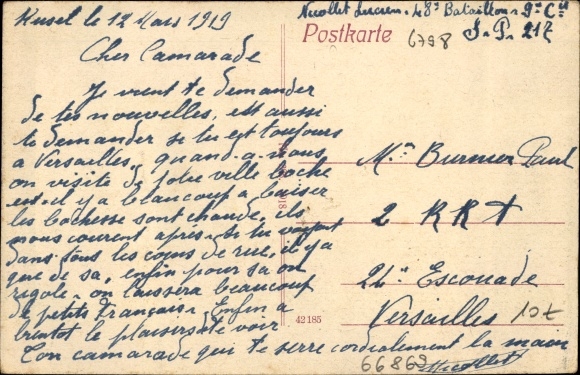 Kusel le 12 Mars 1919
Nicollet Lucien 48e Bataillon 9e Cie
S. P. 217
Postkarte
6798
Cher Camarade
Je vient te demander
de tes nouvelles, est aussi
te demander si tu est toujours
a Versailles, quand a nous
on visite de jolie ville boche
est il y a beaucoup a baiser
les bochesse sont chaude, ils
nous courent après. Si tu voyait
dans tous les coins de rue, il y a
que de sa, enfin pour sa on
rigole. on laissera beaucoup
de petits Français. Enfin a
bientot le plaisir de te voir
Ton camarade qui te serre cordialement la main
Nicollet
Mr Burnier Paul
2 R R T
24e Escouade
Versailles
42185
66869